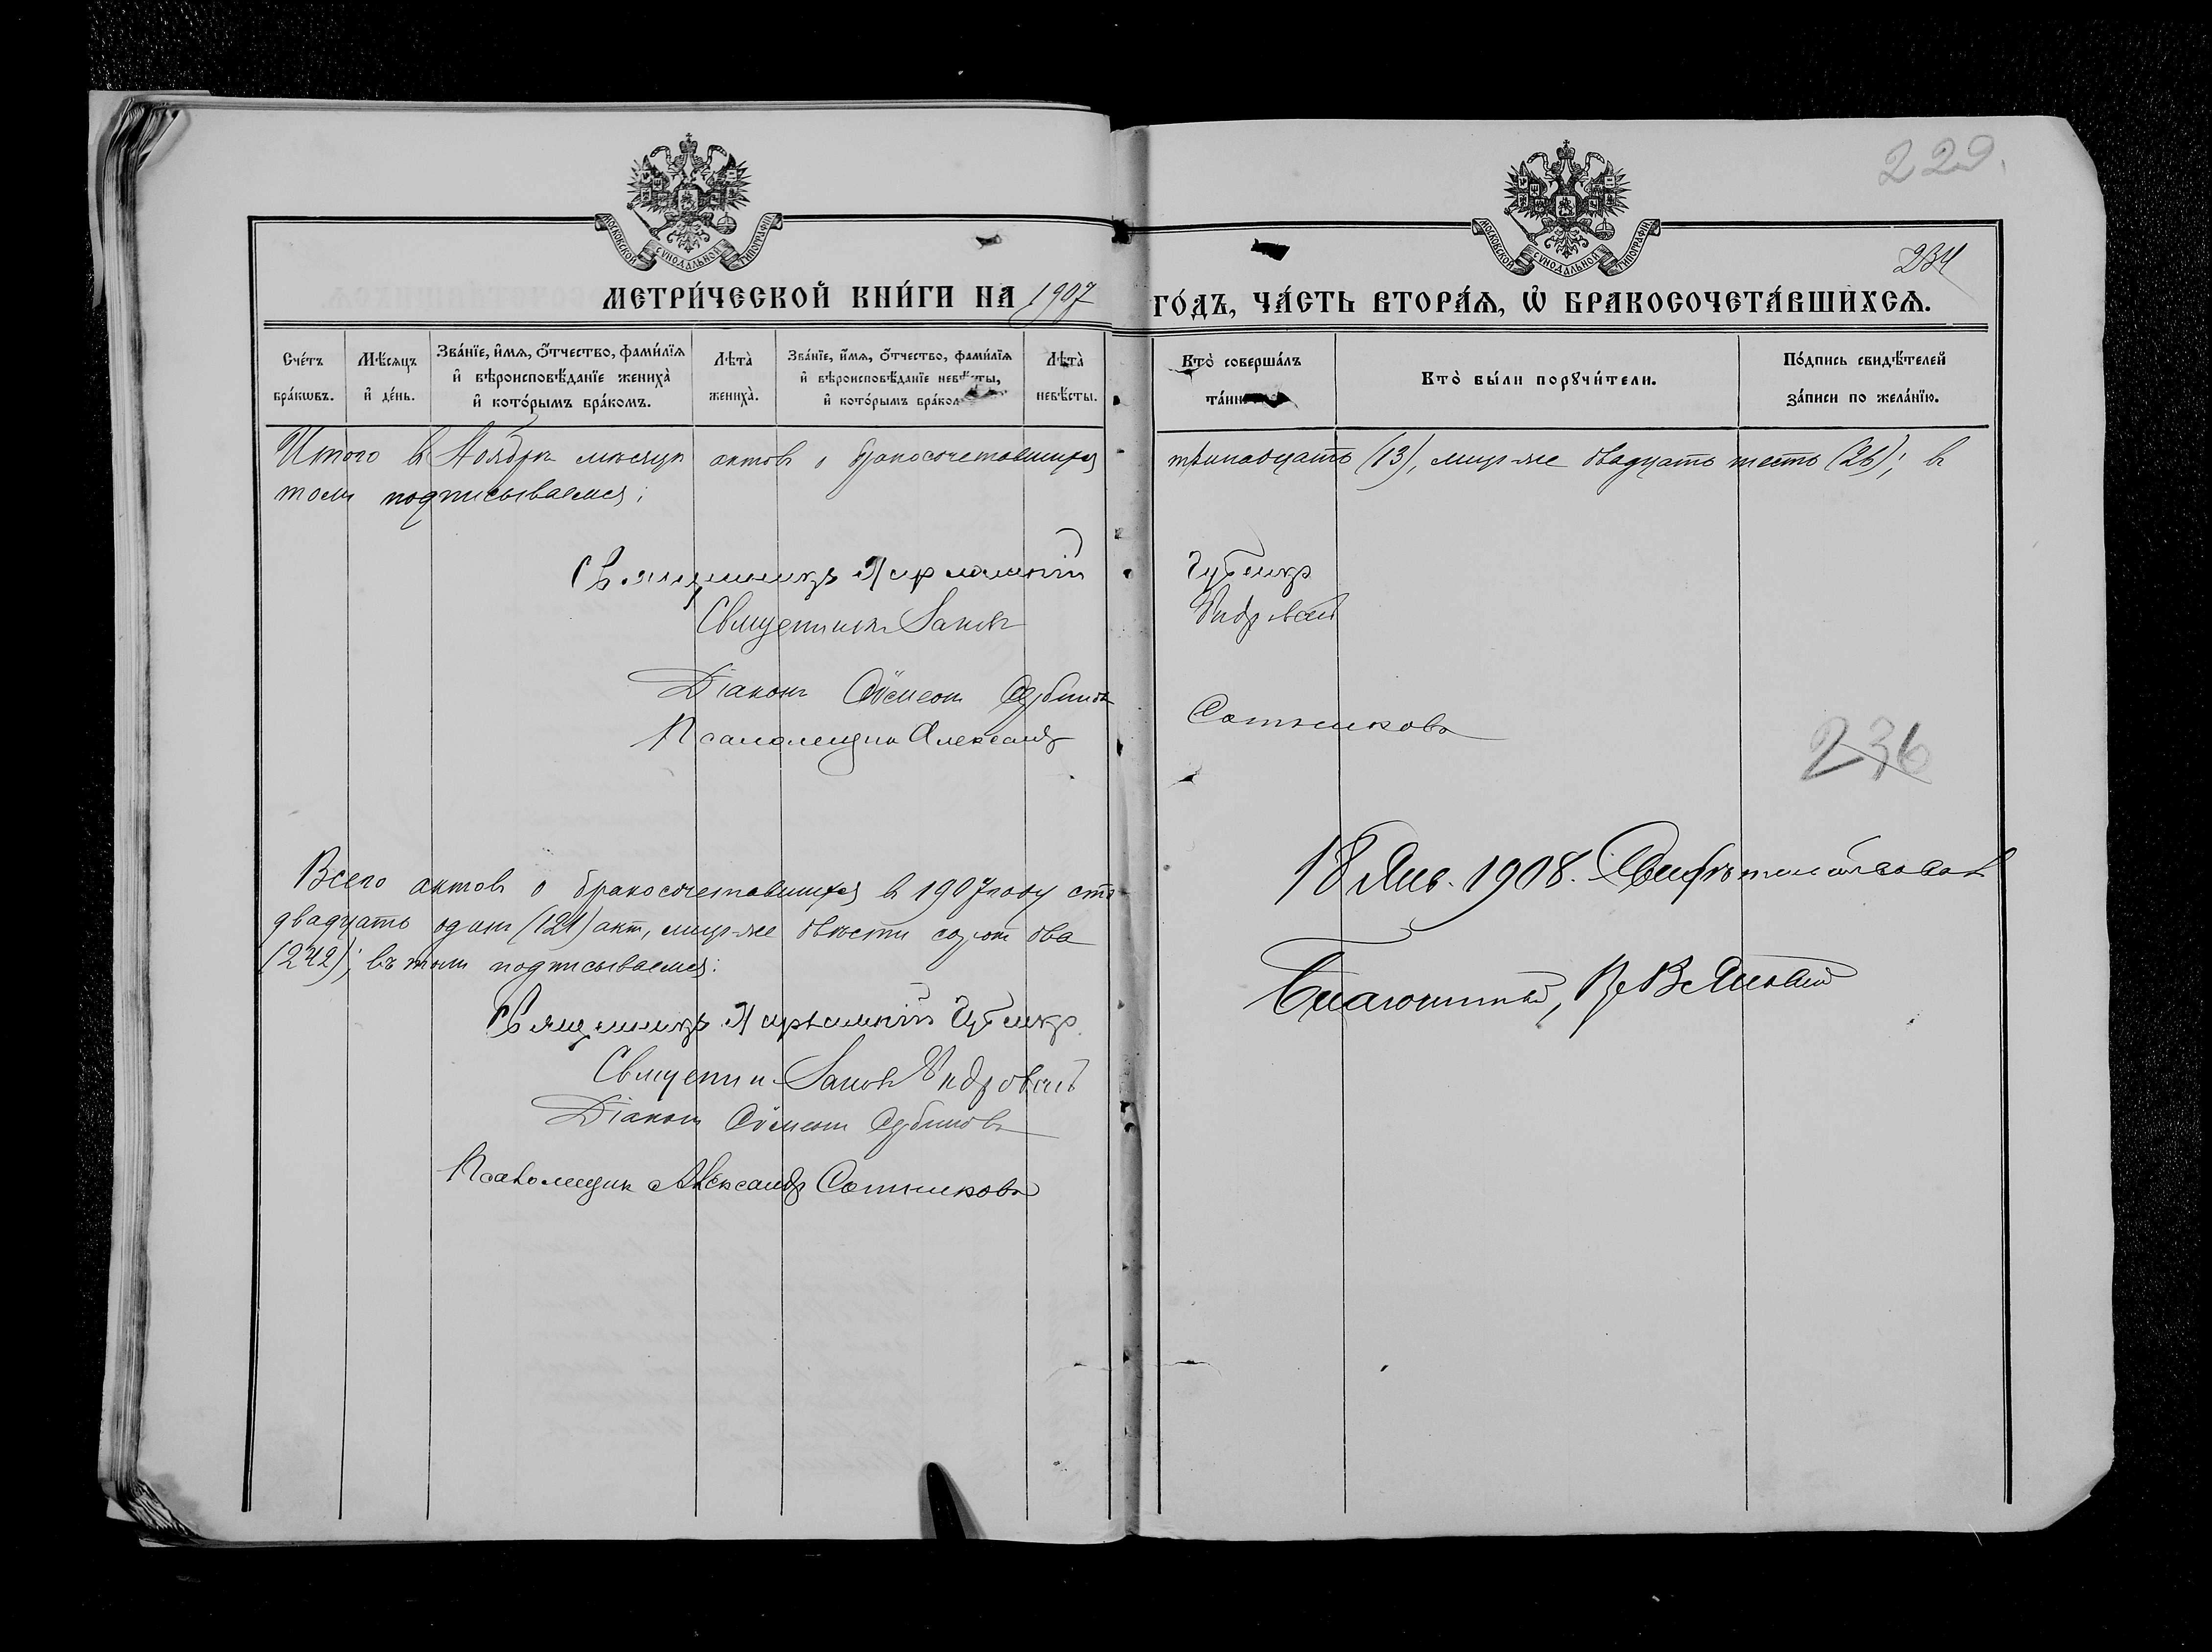 229.
МОСКОВСКОЙ СѴНОДАЛЬНОЙ ТИПОГРАФІИ
МОСКОВСКОЙ СѴНОДАЛЬНОЙ ТИПОГРАФІИ
234
МЕТРИ́ЧЕСКОЙ КНИ́ГИ НА 1907 ГО́ДЪ, ЧА́СТЬ ВТОРА́Ѧ, Ѡ҆ БРАКОСОЧЕТА́ВШИХСѦ.
Сче́тъ бра́кѡвъ.
Мѣ́сѧцъ и҆ де́нь.
Зва́нїе, и҆́мѧ, ѻ҆́тчество, фами́лїѧ и҆ вѣроисповѣ́данїе жениха̀ и҆ кото́рымъ бра́комъ.
Лѣ́та̀ жениха̀.
Зва́нїе, и҆́мѧ, ѻ҆́тчество, фами́лїѧ и҆ вѣроисповѣ́данїе невѣ́сты, и҆ кото́рымъ
Лѣ́та̀ невѣ́сты.
Кто̀ соверша́лъ
Кто̀ бы́ли порꙋчи́тели.
По́дпись свидѣ́телей за́писи по жела́нїю.
Итого въ Ноябрѣ мѣсяцѣ актовъ о бракосочетавшихся тринадцать (13), лицъ-же двадцать шесть (26); въ
томъ подписываемся:
Священникъ
Священникъ
Діаконъ Сѵмеонъ
Псаломщикъ Александръ Сотниковъ
236
Всего актовъ о бракосочетавшихся въ 1907 году сто
двадцать одинъ (121) актъ, лицъ-же двѣсти сорокъ два
(242); въ томъ подписываемся:
Священникъ
Священник
Діаконъ Сѵмеонъ
Псаломщик Александръ Сотниковъ
18 Янв. 1908. Свидѣтельствовал
Благочинный,